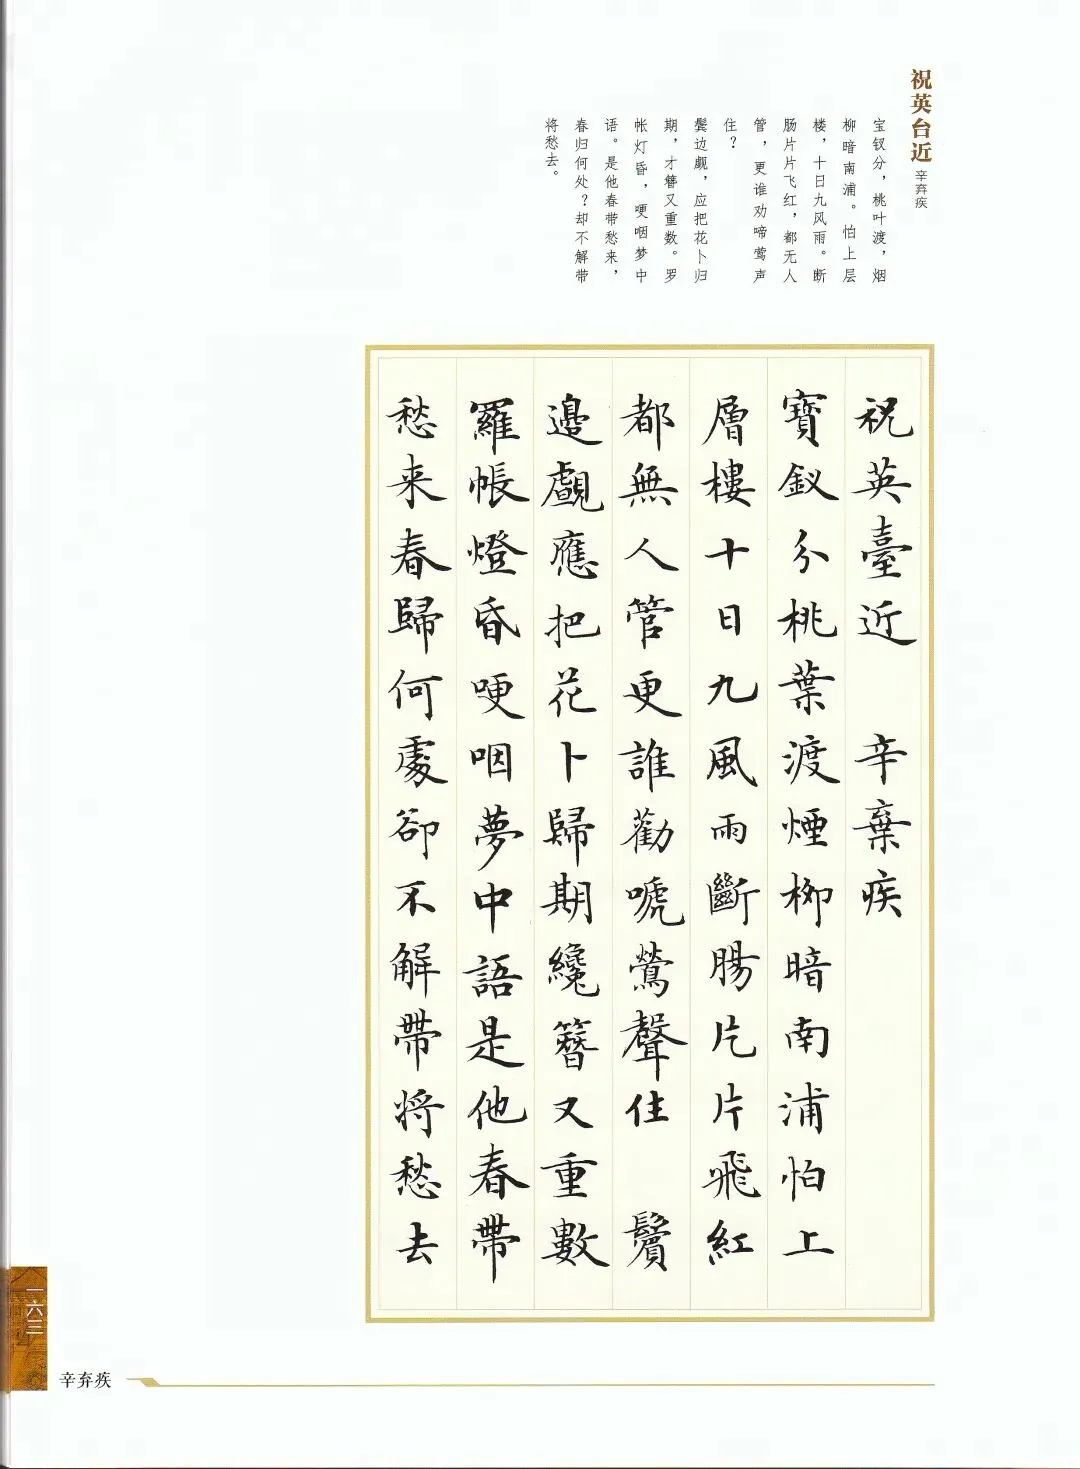 祝英台近
辛弃疾
宝钗分，桃叶渡，烟
柳暗南浦。怕上层
楼，十日九风雨。断
肠片片飞红，都无人
管，更谁劝啼莺声
住？
鬓边觑，应把花卜归
期，才簪又重数。罗
帐灯昏，哽咽梦中
语。是他春带愁来，
春归何处？却不解带
将愁去。
祝英臺近 辛棄疾
寶釵分桃葉渡煙柳暗南浦怕上
層樓十日九風雨斷腸片片飛紅
都無人管更誰勸嗁鶯聲住 鬢
邊覷應把花卜歸期纔簪又重數
羅帳燈昏哽咽夢中語是他春帶
愁来春歸何處卻不解帶將愁去
一六三
辛弃疾